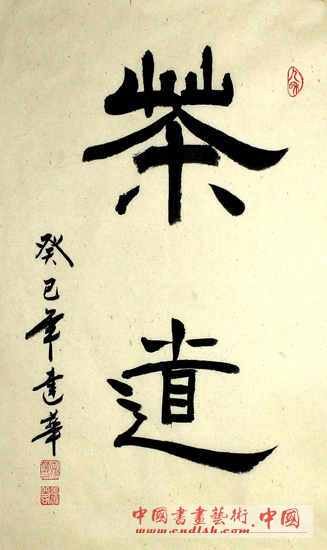 茶道
癸巳年建華
中國書畫藝術.中國
www.cndlsh.com